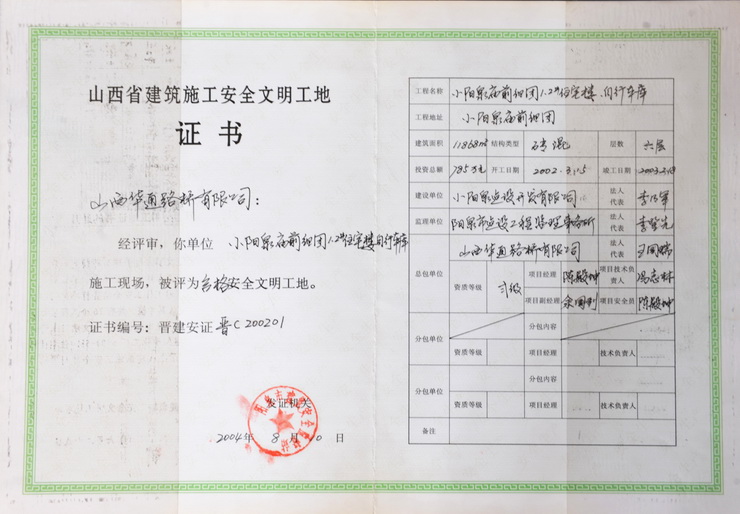 山西省建筑施工安全文明工地
证书
山西华通路桥有限公司：
经评审，你单位 小阳泉店前组团1.2#住宅楼自行车库
施工现场，被评为合格安全文明工地。
证书编号：晋建安证 晋C200201
发证机关
2004年 8月10日
工程名称 小阳泉店前组团1.2#住宅楼.自行车库
工程地址 小阳泉店前组团
建筑面积 11868m² 结构类型 砖混 层数 六层
投资总额 785万元 开工日期 2002.3.15 竣工日期
建设单位 小阳泉建设开发有限公司 法人代表
监理单位 阳泉市建设工程监理事务所 法人代表
总包单位 山西华通路桥有限公司 法人代表
资质等级 贰级 项目经理 陈毅坤 项目技术负责人 冯志林
项目副经理 余国利 项目安全员 陈毅坤
分包单位 分包内容
资质等级 项目经理 技术负责人
分包单位 分包内容
资质等级 项目经理 技术负责人
备注